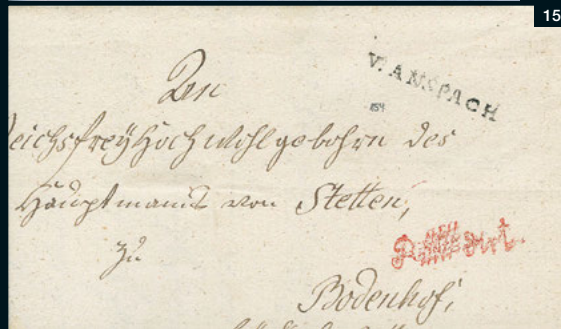 15
V. ANSPACH
Den
ReichsfreyHochwohlgebohrn des
Hauptmanns von Stetten,
zu
Bodenhof,